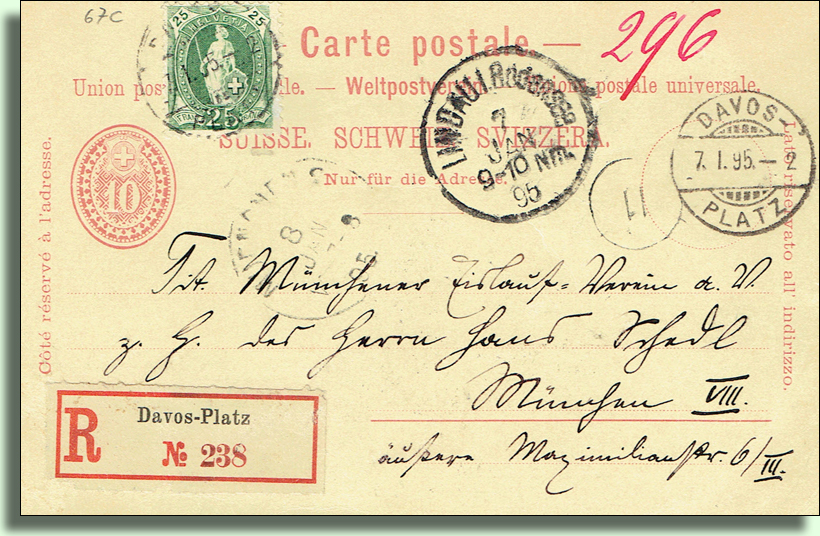 67C
25 HELVETIA 25
FRANCO 25
Carte postale —
296
Union postale — Weltpostverein — Unione postale universale.
SUISSE. SCHWEIZ. SVIZZERA.
Nur für die Adresse.
10
LINDAU i. Bodensee
7
JAN
9-10 Nm.
95
DAVOS-
7. I. 95.—2
PLATZ
11
8
JAN
7-8
95
Côté réservé à l'adresse.
Lato riservato all' indirizzo.
Tit. Münchener Eislauf-Verein a. V.
z. H. des Herrn Hans Schedl
München VIII.
äußere Maximilianstr. 6/III.
R
Davos-Platz
№ 238